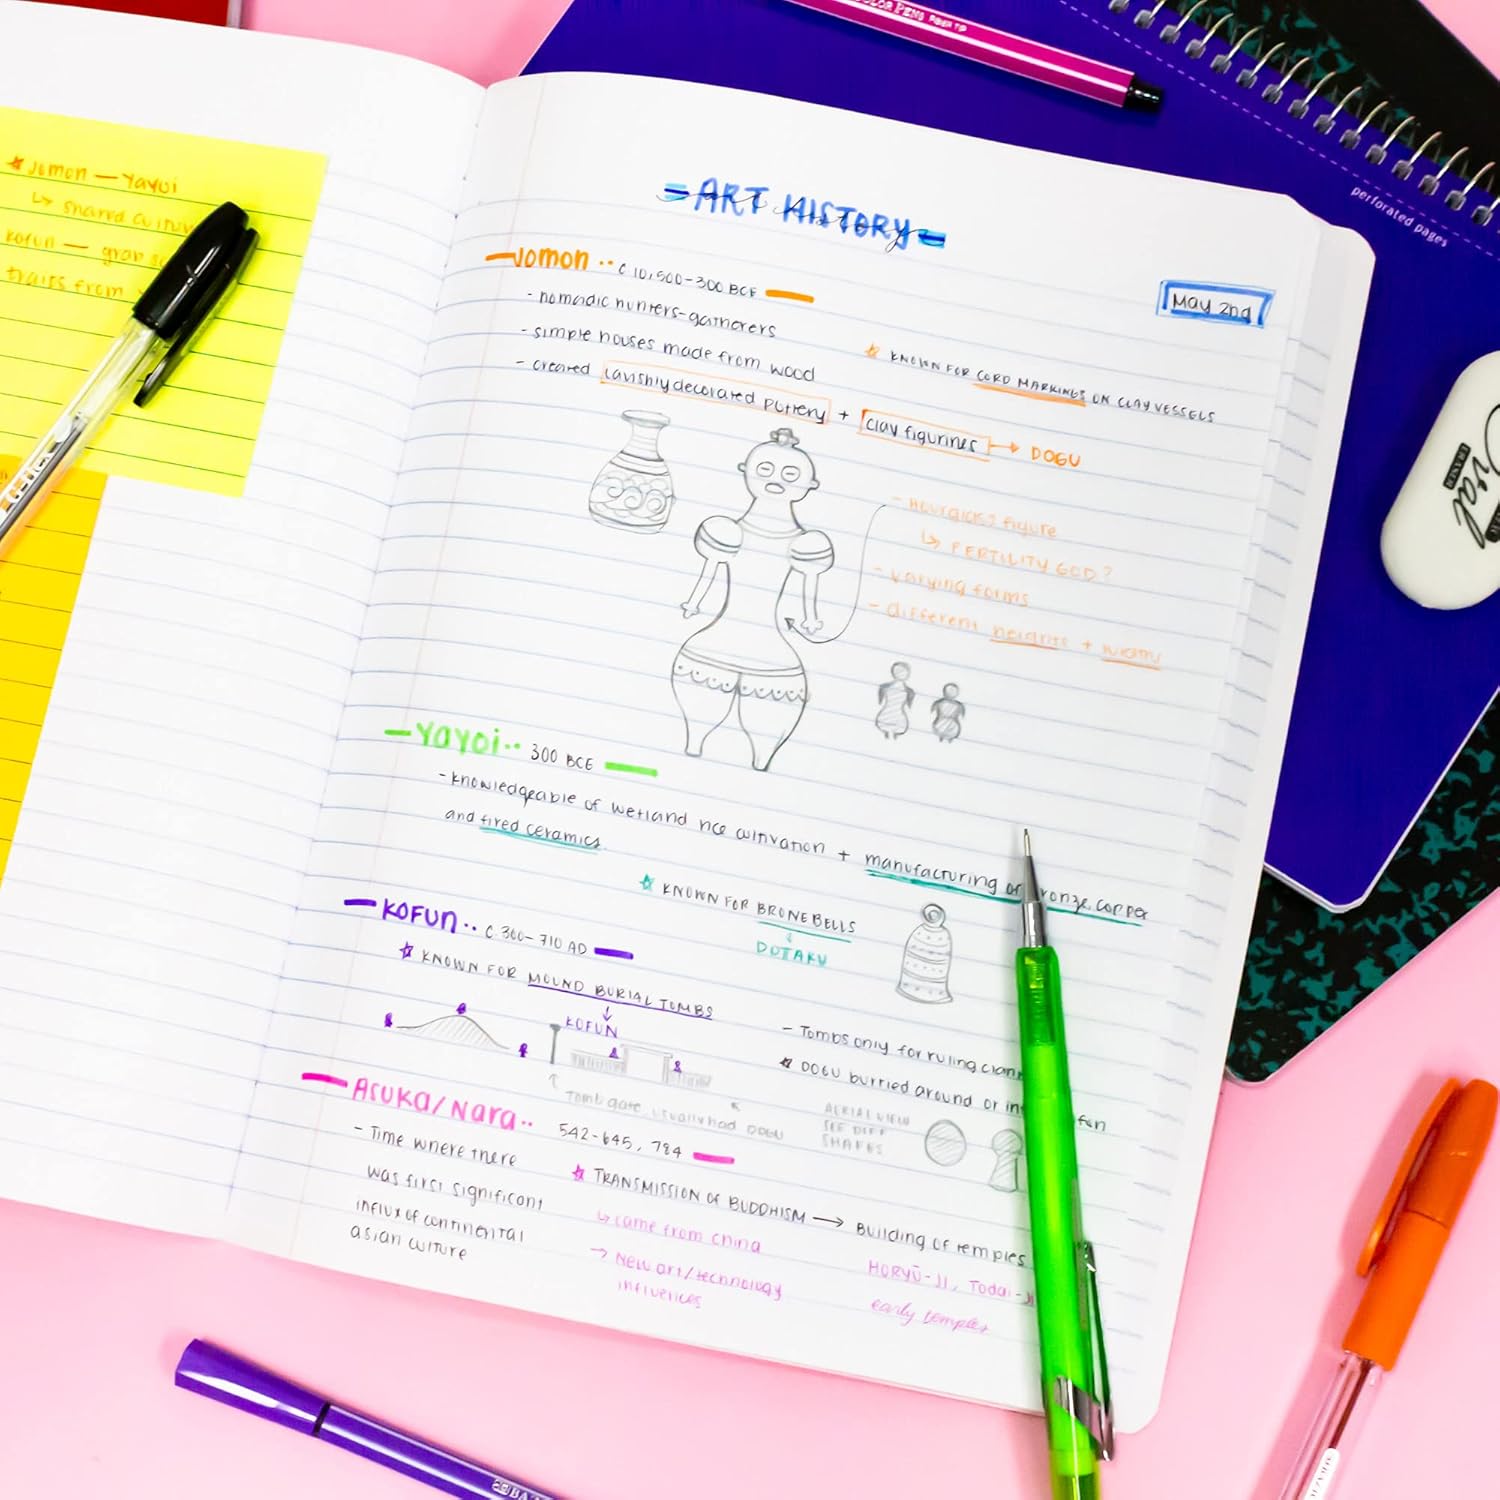 COLOR PENS
perforated pages
★ Jomon — Yayoi
↳ shared
Kofun —
traits from
= ART HISTORY =
May 2nd
— Jomon ·· c 10,500-300 BCE —
- nomadic hunters-gatherers
- simple houses made from wood
- created lavishly decorated pottery + clay figurines → DOGU
☆ KNOWN FOR CORD MARKINGS ON CLAY VESSELS
- Hourglass figure
↳ FERTILITY GOD?
- varying forms
- different heights + widths
— Yayoi ·· 300 BCE —
- knowledgeable of wetland rice cultivation + manufacturing of bronze, copper
and fired ceramics
☆ KNOWN FOR BRONE BELLS
↓
DOTAKU
— KOFUN ·· C. 300-710 AD —
☆ KNOWN FOR MOUND BURIAL TOMBS
↓
KOFUN
Tomb gate, usually had DOGU
- Tombs only for ruling
★ DOGU burried around or in
AERIAL VIEW
SEE DIFF
SHAPES
— Asuka/Nara ·· 542-645, 784 —
- Time where there
was first significant
influx of continental
asian culture
☆ TRANSMISSION OF BUDDHISM → Building of temples
↳ came from china
→ New art/technology
influences
HORYŪ-JI, Todai-
early temples
Oval